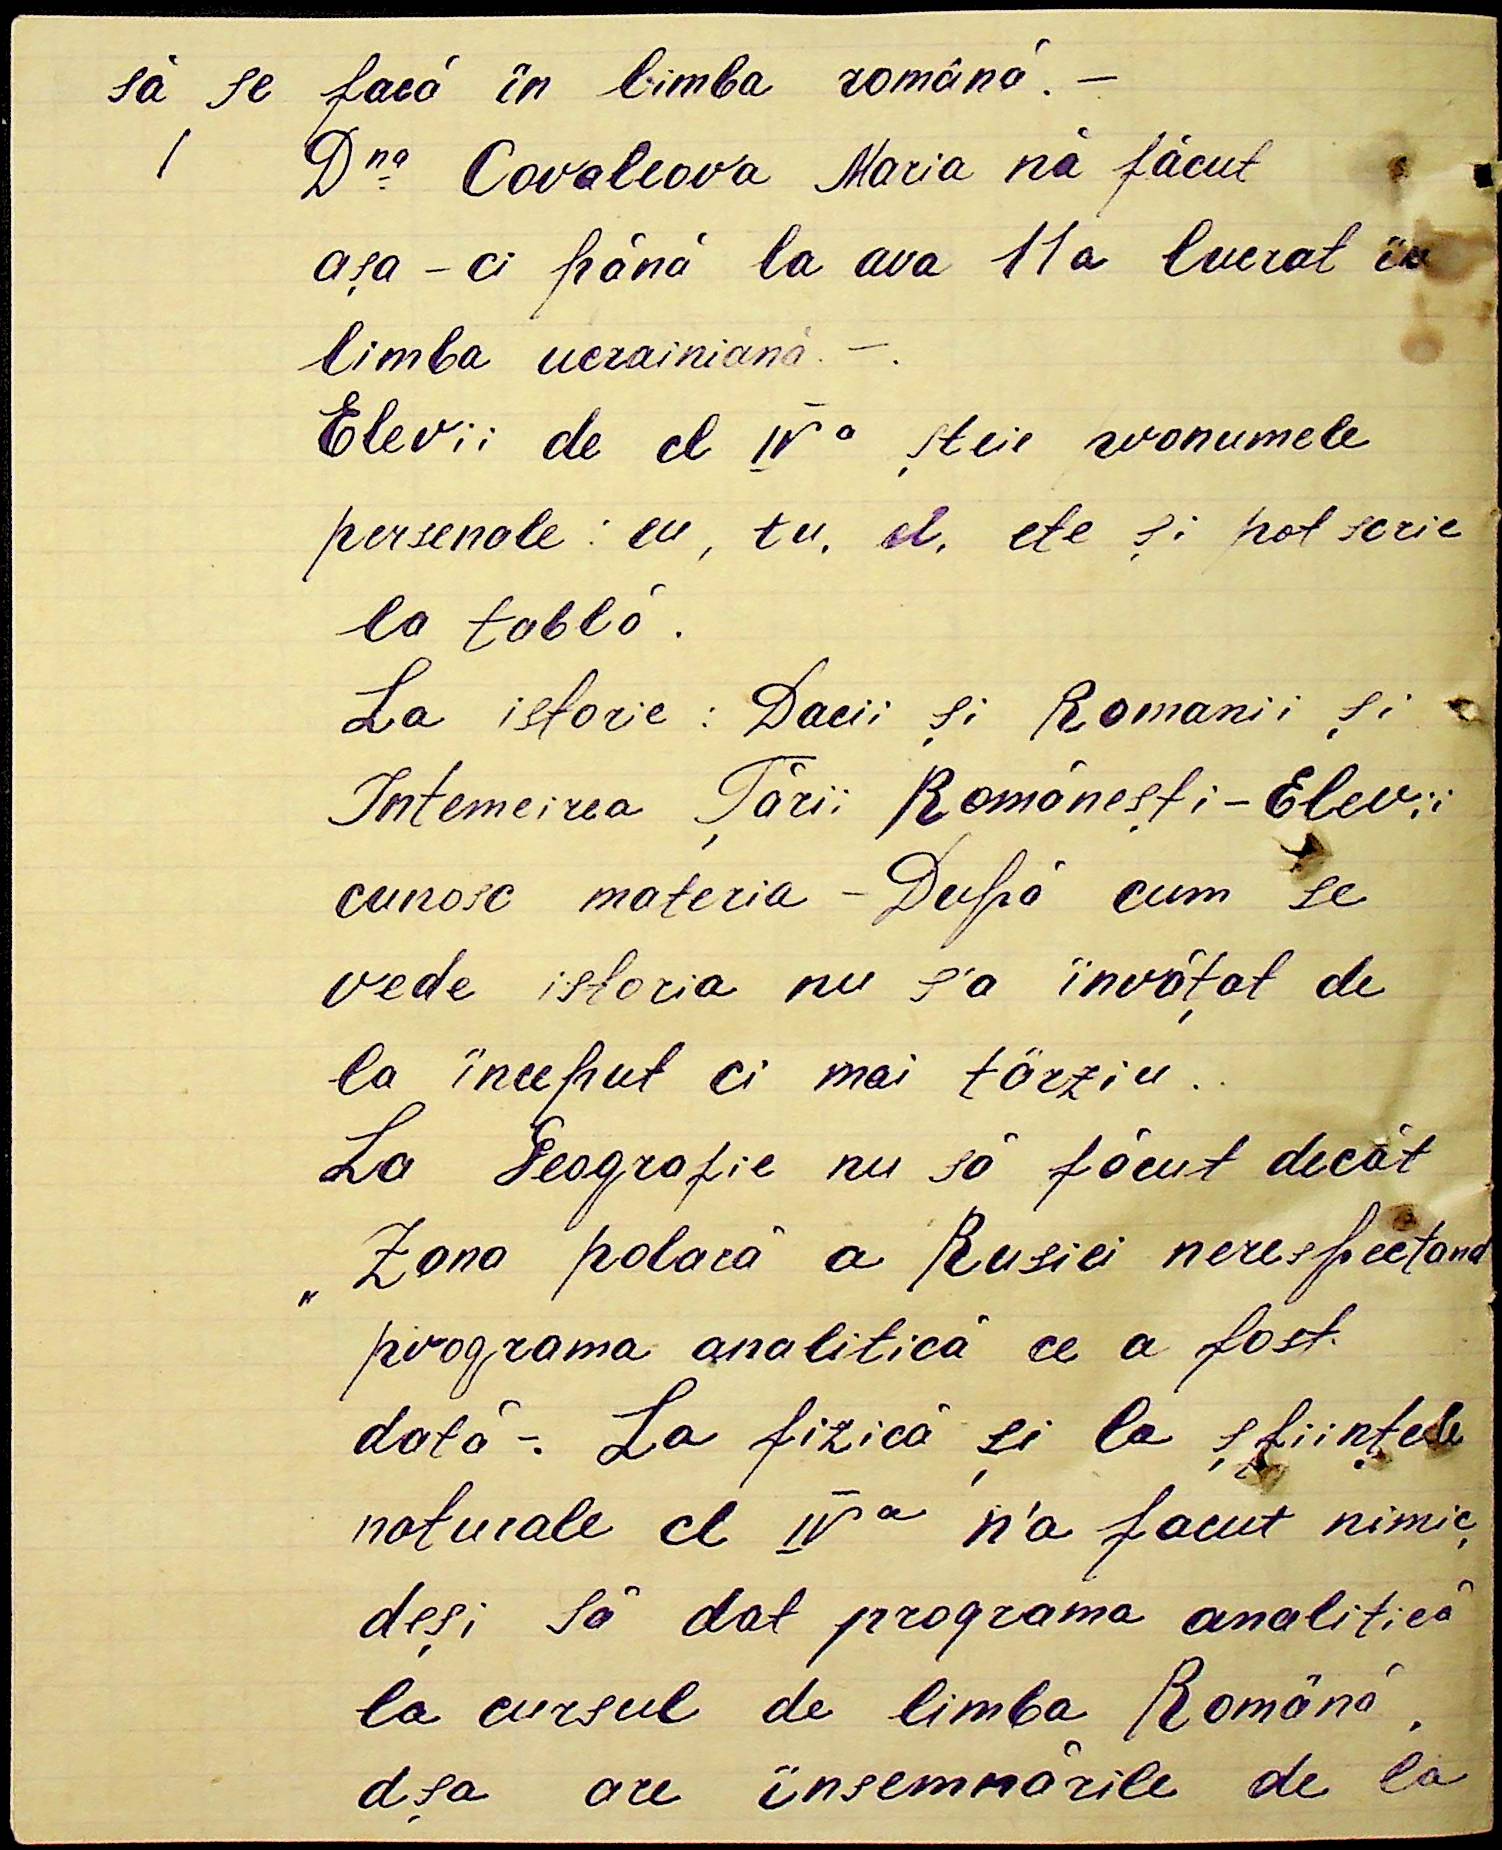 să se facă în limba română. –
/ Dna Covaleova Maria nă făcut
așa – ci până la ava 11a lucrat în
limba ucrainiană. –.
Elevii de cl IV a șteie pronumele
persenale : eu, tu, el, ete și pot scrie
la tablă.
La istorie : Dacii și Romanii și
Intemeirea Țării Românești – Elevii
cunosc materia – După cum se
vede istoria nu s'a învățat de
la început ci mai târziu.
La Geografie nu să făcut decât
„ Zona polară a Rusiei nerespectand
programa analitică ce a fost
dată –. La fizică și la științele
naturale cl IV a n'a facut nimic,
deși să dat programa analitică
la cursul de limba Română,
dșa are însemnările de la